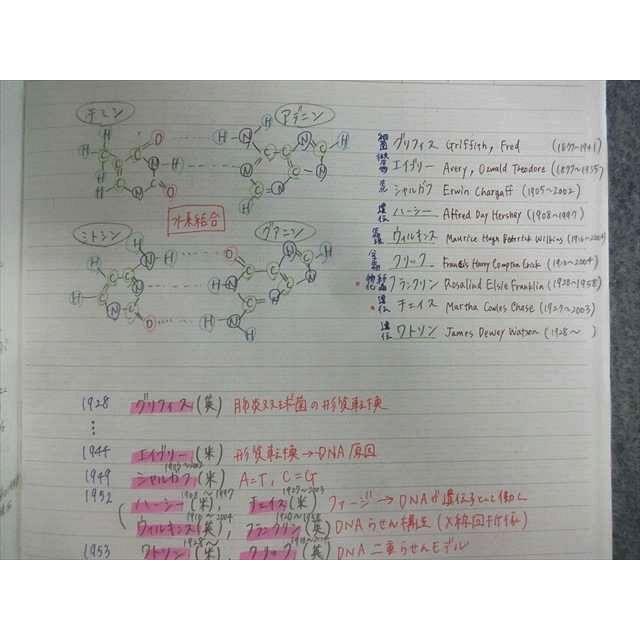 チミン
アデニン
水素結合
シトシン
グアニン
グリフィス Griffith, Fred (1877~1941)
エイブリー Avery, Oswald Theodore (1877~1955)
シャルガフ Erwin Chargaff (1905~2002)
遺伝 ハーシー Alfred Day Hershey (1908~1997)
ウィルキンス Maurice Hugh Wilkins (1916~2004)
クリック Francis Harry Compton Crick (~2004)
フランクリン Rosalind Elsie Franklin (1920~1958)
遺伝 チェイス Martha Cowles Chase (1927~2003)
遺伝 ワトソン James Dewey Watson (1928~ )
1928 グリフィス(英) 肺炎双球菌の形質転換
1944 エイブリー(米) 形質転換→DNA原因
1949 シャルガフ(米) A=T, C=G
1952 ハーシー(米), チェイス(米) ファージ→DNAが遺伝子として働く
1908~1997
1927~2003
ウィルキンス(英), フランクリン(英) DNAらせん構造(X線回折像)
1916~2004
1920~1958
1953 ワトソン(米), クリック(英) DNA二重らせんモデル
1928~